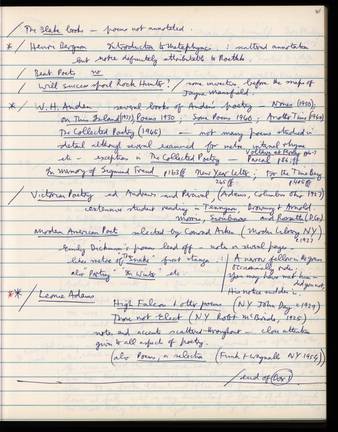 The Blake books – poems not annotated.
* / Henri Bergson Introduction to Metaphysics : scattered annotation
but none definitely attributable to Roethke
/ Beat Poets no
/ Will success spoil Rock Hunter? / some inventive before the maps of
Jayne Mansfield.
* / W. H. Auden – several books of Auden's poetry – Nones (1950),
On This Island (1937), Poems 1930; Some Poems 1940; Another Time (1940)
The Collected Poetry (1945) – not many poems studied in
detail although several scanned for metre, internal rhyme
etc – exception in The Collected Poetry –
In Memory of Sigmund Freud p163ff New Year Letter; For the Time Being
265 ff
/ Victorian Poetry ed Andrews and Percival, (Adams, Columbus Ohio
extensive student reading – Tennyson Browning & Arnold
Morris, Swinburne and Rossetti (D.G.)
Modern American Poet selected by Conrad Aiken (Modern Library NY)
1927
Emily Dickinson's poems lead off – note on several pages –
likes metre of "The Snake" first stanza
also Poetry "The Winter" etc
A narrow fellow in the grass
Occasionally rides;
You may have met him –
did you not,
His notice sudden is.
** / Leonie Adams
High Falcon & other poems (NY John Day 1929)
Those not Elect (NY Robt McBride, 1925)
notes and accents scattered throughout – close attention
given to all aspect of poetry.
(also Poems, a selection (Funk & Wagnalls NY 1954))
/ end of Box 1